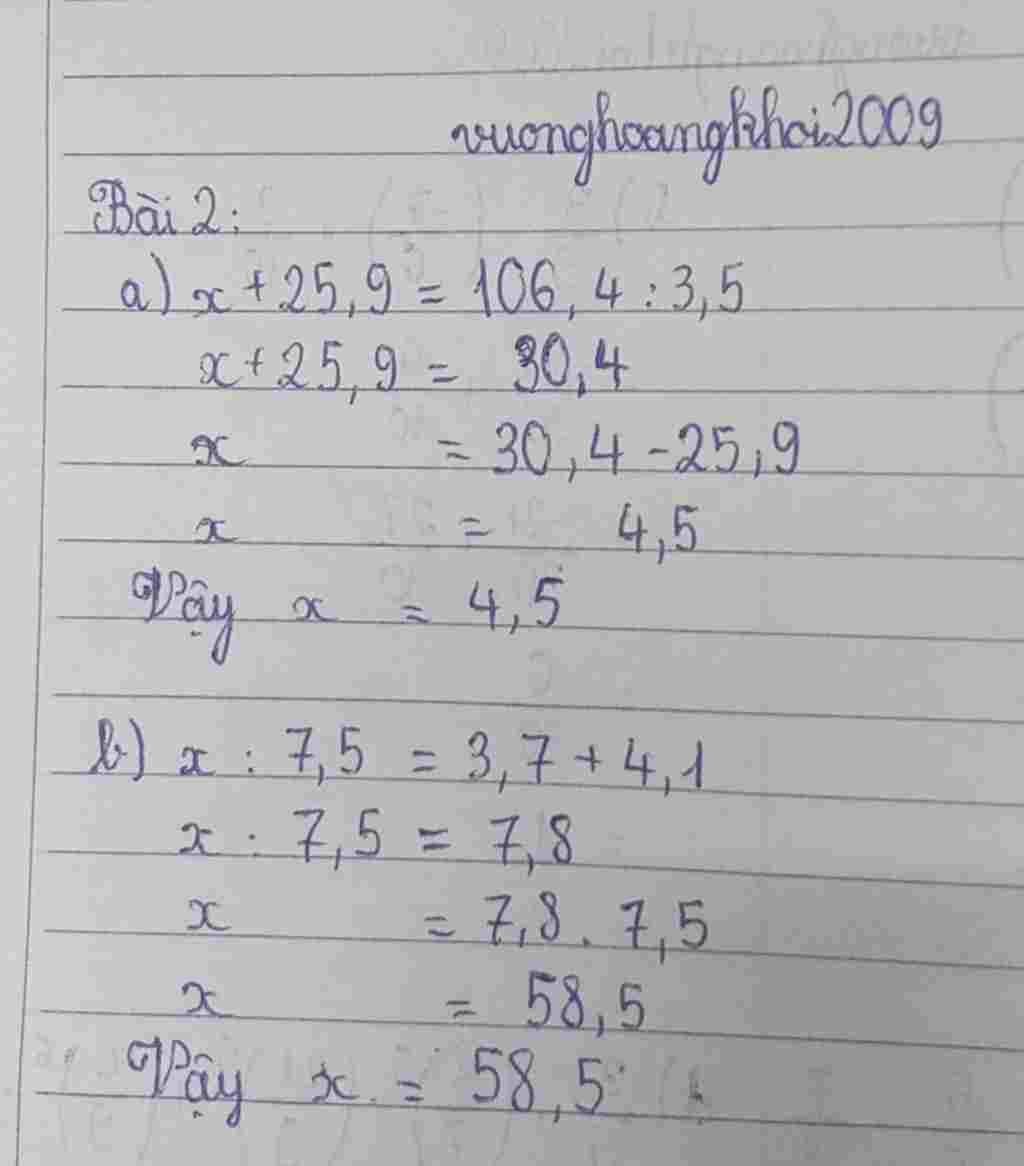 vuonghoangkhoi2009
Bài 2:
a) x + 25,9 = 106,4 : 3,5
x + 25,9 = 30,4
x = 30,4 - 25,9
x = 4,5
Vậy x = 4,5
b) x : 7,5 = 3,7 + 4,1
x : 7,5 = 7,8
x = 7,8 . 7,5
x = 58,5
Vậy x = 58,5